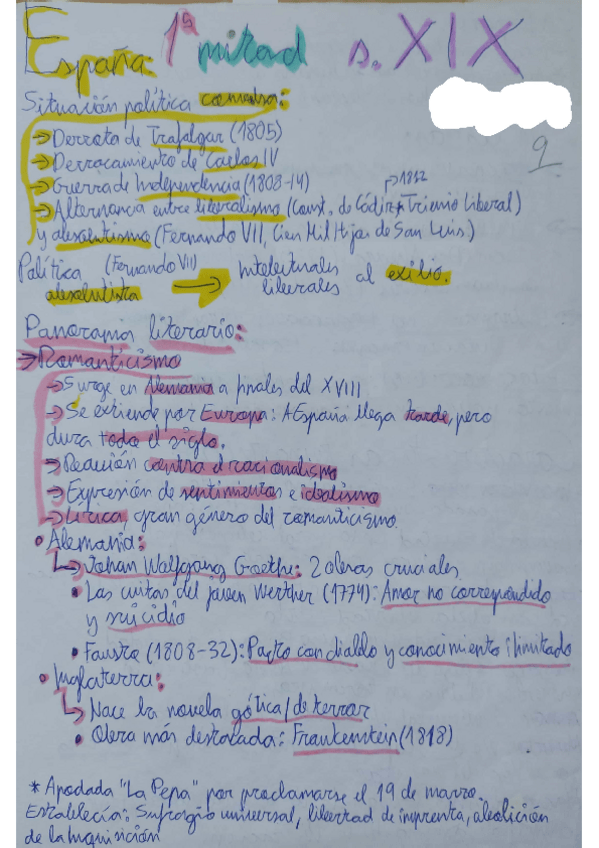 España 1ª mitad s. XIX
Situación política convulsa:
→ Derrota de Trafalgar (1805)
→ Derrocamiento de Carlos IV
→ Guerra de Independencia (1808-14)
→ 1812
→ Alternancia entre liberalismo (Const. de Cádiz*, Trienio Liberal)
y absolutismo (Fernando VII, Cien Mil Hijos de San Luis)
Política (Fernando VII) absolutista → Intelectuales liberales al exilio.
Panorama literario:
→ Romanticismo
→ Surge en Alemania a finales del XVIII
→ Se extiende por Europa: A España llega tarde, pero
dura todo el siglo.
→ Reacción contra el racionalismo
→ Expresión de sentimientos e idealismo
→ Lírica, gran género del romanticismo.
• Alemania:
↳ Johan Wolfgang Goethe: 2 obras cruciales
• Las cuitas del joven Werther (1774): Amor no correspondido
y suicidio
• Fausto (1808-32): Pacto con diablo y conocimiento ilimitado
• Inglaterra:
↳ Nace la novela gótica/de terror
• Obra más destacada: Frankenstein (1818)
* Apodada "La Pepa" por proclamarse el 19 de marzo.
Establecía: Sufragio universal, libertad de imprenta, abolición
de la Inquisición